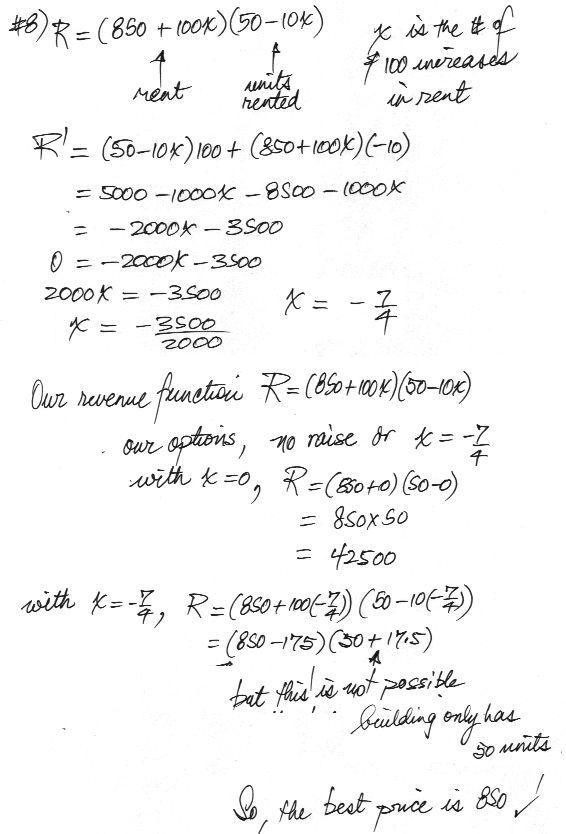 #8) R = (850 + 100x)(50 - 10x)
x is the # of
$100 increases
in rent
rent
units
rented
R' = (50-10x)100 + (850+100x)(-10)
= 5000 - 1000x - 8500 - 1000x
= - 2000x - 3500
0 = -2000x - 3500
2000x = -3500
x = -3500/2000
x = - 7/4
Our revenue function R = (850+100x)(50-10x)
our options, no raise or x = -7/4
with x=0, R = (850+0)(50-0)
= 850x50
= 42500
with x = -7/4, R = (850+100(-7/4))(50-10(-7/4))
= (850-175)(50+17.5)
but this is not possible
building only has
50 units
So, the best price is 850 ✓